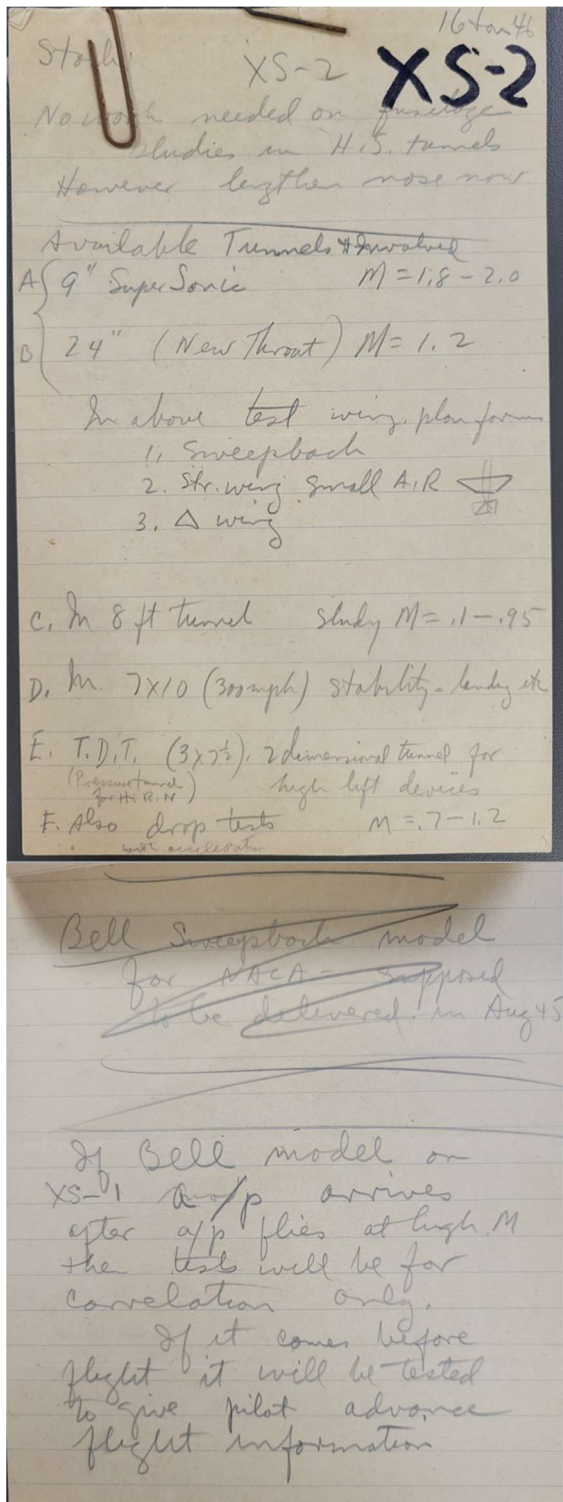 16 Jan 46
XS-2 XS-2
No work needed on fuselage
studies in H.S. tunnels
However lengthen nose now
Available Tunnels & Involved
A 9" SuperSonic M = 1.8 - 2.0
B 24" (New Throat) M = 1.2
In above test wing plan forms
1. Sweepback
2. Str. wing small A.R
3. △ wing
C. In 8 ft tunnel study M = .1 - .95
D. In 7x10 (300mph) stability - landing etc
E. T.D.T. (3x7½). 2 dimensional tunnel for
(Pressure tunnel high lift devices
for H.R.N)
F. Also drop tests M = .7 - 1.2
with acceleration
Bell Sweepback model
for NACA - supposed
to be delivered in Aug 45
If Bell model on
XS-1 a/p arrives
after a/p flies at high M
then tests will be for
correlation only.
If it comes before
flight it will be tested
to give pilot advance
flight information